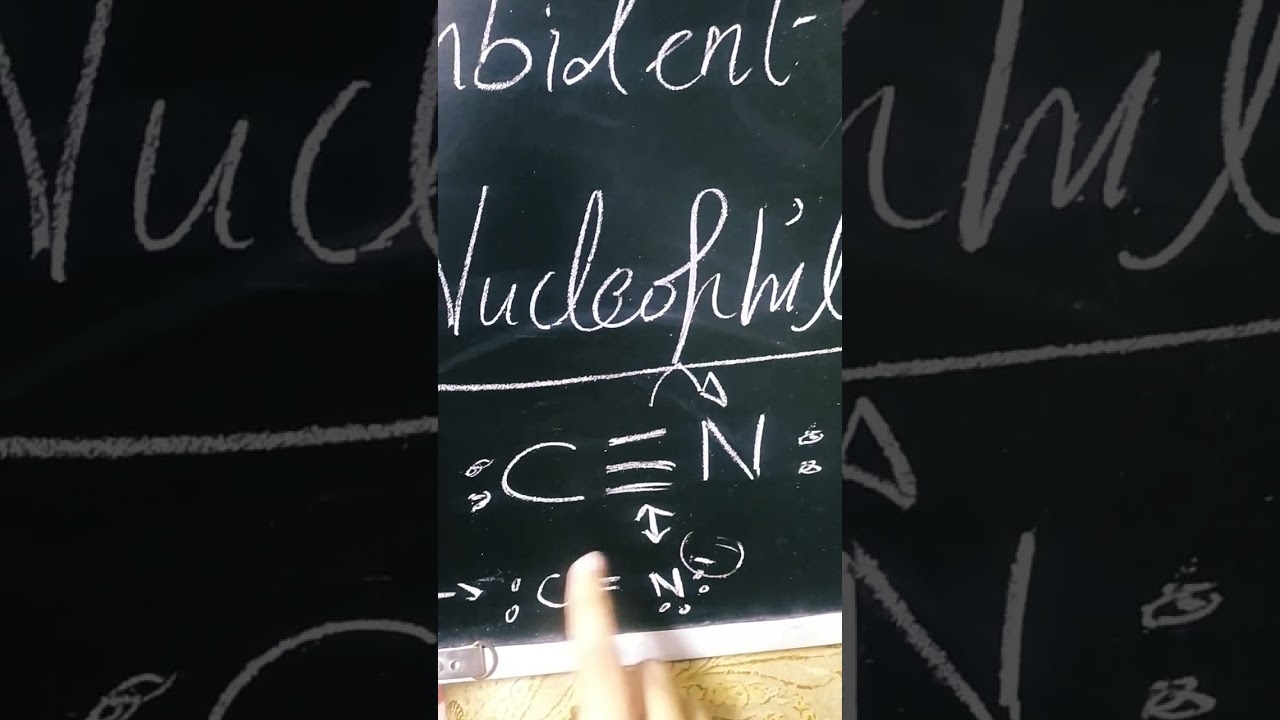 mbident
Nucleophil
:C≡N:
↕
→ :C=N: